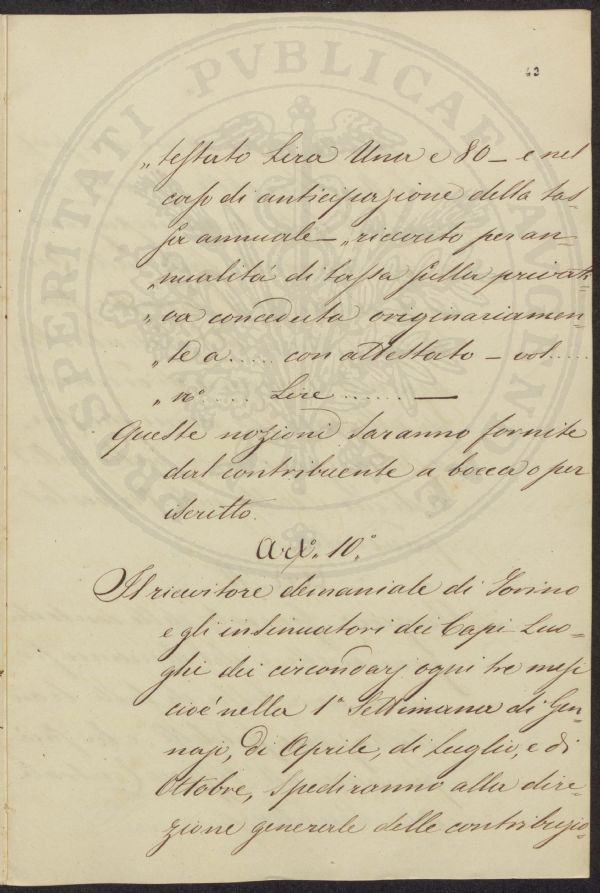 PROSPERITATI PVBLICAE AVGENDAE
43
„testato Lira Una e 80 – e nel
caso di anticipazione della tas-
sa annuale – „ricevuto per an-
„nualità di tassa sulla privati-
„va conceduta originariamen-
„te a ..... con attestato – vol. ....
„n° ..... Lire ....... —
Queste nozioni saranno fornite
dal contribuente a bocca o per
iscritto.
Art°. 10.°
Il ricevitore demaniale di Torino
e gli insinuatori dei Capi Luo-
ghi dei circondarj ogni tre mesi
cioè nella 1ª Settimana di Gen-
najo, di Aprile, di Luglio, e di
Ottobre, spediranno alla dire-
zione generale delle contribuzio-